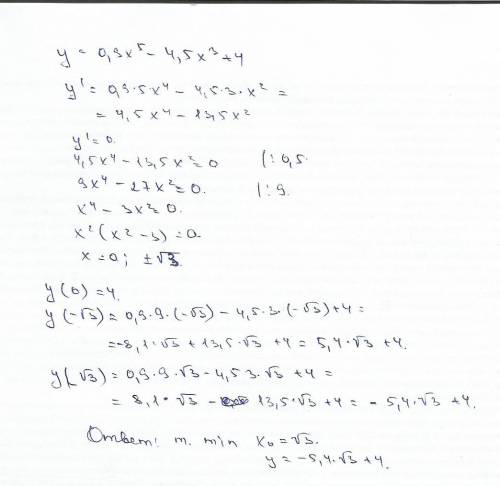 y = 0,9x⁵ - 4,5x³ + 4
y' = 0,9·5x⁴ - 4,5·3·x² =
= 4,5x⁴ - 13,5x²
y' = 0.
4,5x⁴ - 13,5x² = 0 |: 0,5.
9x⁴ - 27x² = 0. |: 9.
x⁴ - 3x² = 0.
x² (x² - 3) = 0.
x = 0; ±√3.
y(0) = 4.
y(-√3) = 0,9·9·(-√3) - 4,5·3·(-√3) + 4 =
= -8,1·√3 + 13,5·√3 + 4 = 5,4·√3 + 4.
y(√3) = 0,9·9·√3 - 4,5·3·√3 + 4 =
= 8,1·√3 - 13,5·√3 + 4 = -5,4·√3 + 4.
Ответ: т. min x₀ = √3.
y = -5,4·√3 + 4.